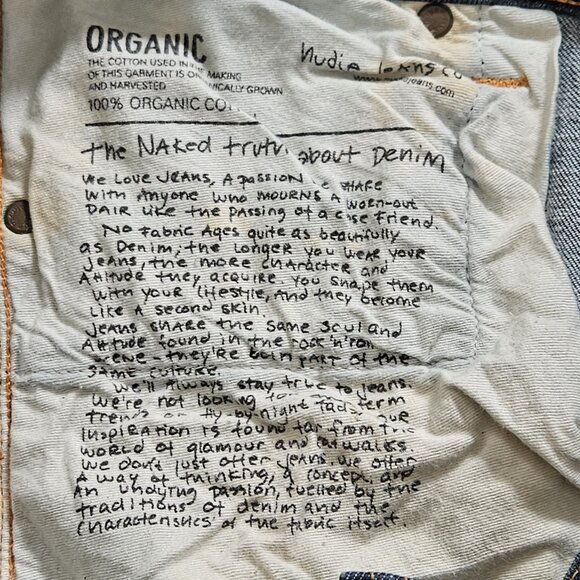 ORGANIC
THE COTTON USED IN MAKING
OF THIS GARMENT IS
AND HARVESTED GROWN
100% ORGANIC
nudie jeans co
www.nudiejeans.com
The Naked truth about Denim
We Love JEANS, A passion we SHARE
with Anyone who mourns A worn-out
pair like the passing of a close friend.
No Fabric Ages quite as beautifully
as Denim, the longer you wear your
Jeans, the more character and
Attitude they acquire. you shape them
with your lifestyle, and they become
like a second skin.
Jeans share the same soul and
Attitude found in the rock'n'roll
scene - they're both part of the
same culture.
We'll Always stay true to jeans.
We're not looking for term
trends or fly-by-night fads. our
Inspiration is found far from the
world of glamour and catwalks
We don't just offer jeans, we offer
A way of thinking, a concept and
An undying passion, fuelled by the
traditions of denim and the
characteristics of the fabric itself.